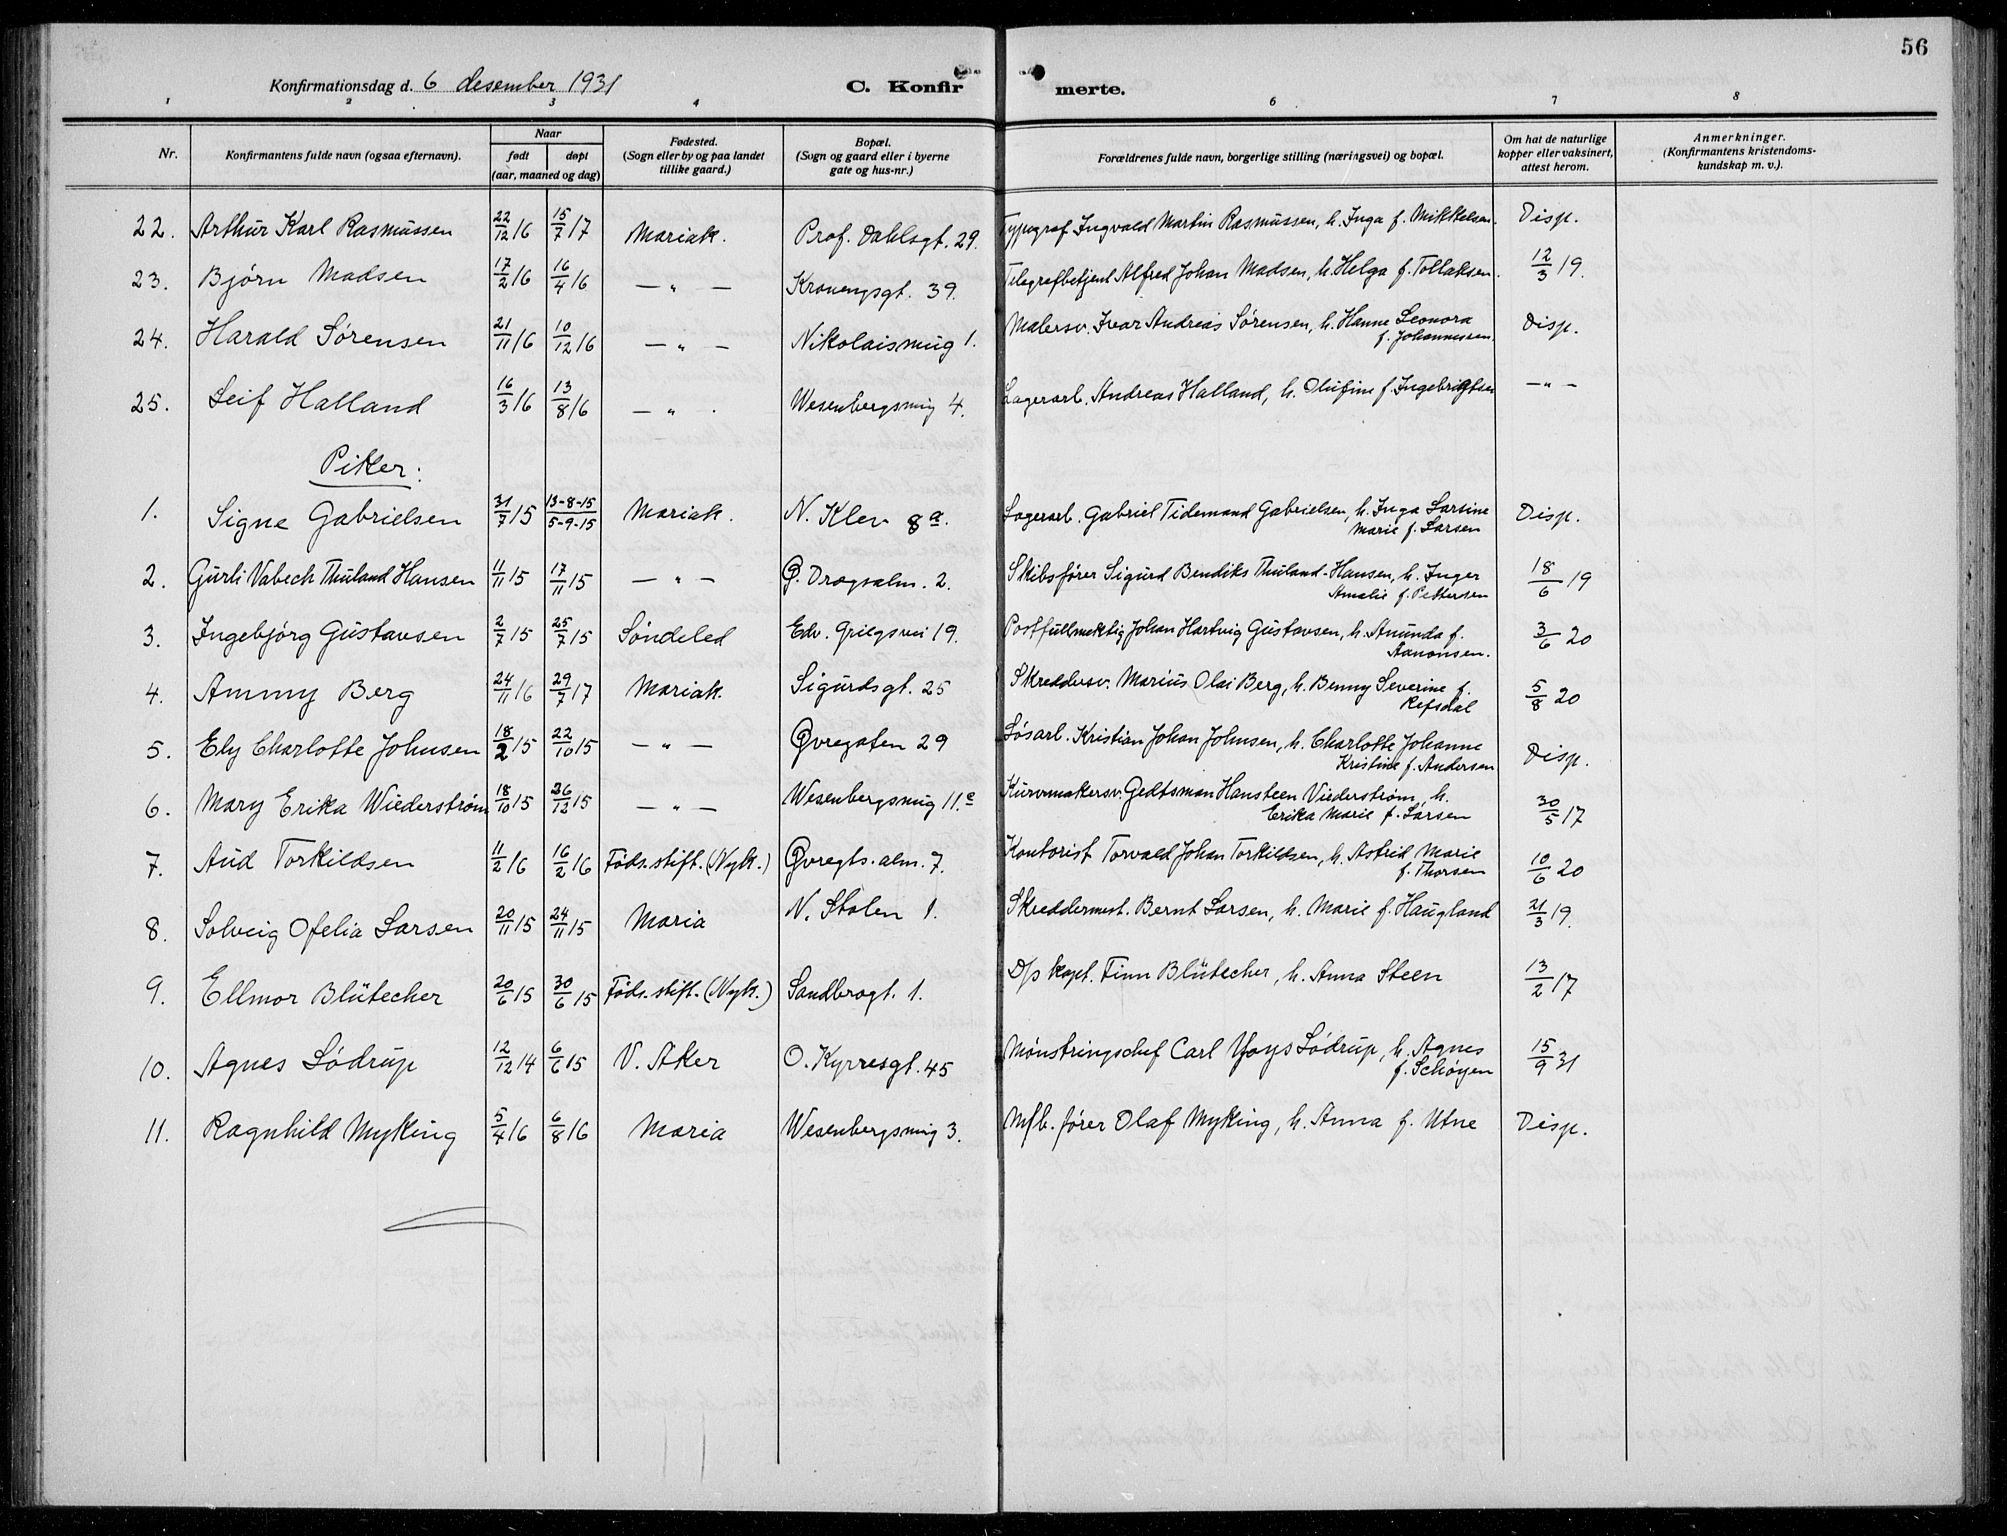 56
Konfirmationsdag d. 6 desember 1931 C. Konfir merte.
1 2 3 4 6 7 8
Nr. Konfirmantens fulde navn (ogsaa efternavn). Naar født døpt (aar, maaned og dag) Fødested. (Sogn eller by og paa landet tillike gaard.) Bopæl. (Sogn og gaard eller i byerne gate og hus-nr.) Forældrenes fulde navn, borgerlige stilling (næringsvei) og bopæl. Om hat de naturlige kopper eller vaksinert, attest herom. Anmerkninger. (Konfirmantens kristendoms-kundskap m. v.).
22. Arthur Karl Rasmussen 22/12 16 15/7 17 Mariak. Prof. Dahlsgt. 29. Typograf Ingvald Martin Rasmussen, h. Inga f. Mikkelsen. Disp.
23. Bjørn Madsen 17/2 16 16/4 16 — " — Kronengsgt. 39. Telegrafbetjent Alfred Johan Madsen, h. Helga f. Tollaksen. 12/3 19.
24. Harald Sørensen 21/11 16 10/12 16 — " — Nikolaismug 1. Malersv. Ivar Andreas Sørensen, h. Hanne Leonora
f. Johannessen. Disp.
25. Leif Halland 16/3 16 13/8 16 — " . Wesenbergsmug 4. Lagerarb. Andreas Halland, h. Olufine f. Ingebrigtsen — " —
Piker:
1. Signe Gabrielsen 31/7 15 13-8-15 / 5-9-15 Mariak. N. Klev 8 a. Lagerarb. Gabriel Tidemand Gabrielsen, h. Inga Larsine
Marie f. Larsen Disp.
2. Gurli Vabech Thuland Hansen 11/11 15 17/11 15 — " — Ø. Dregsalm. 2. Skibsfører Sigurd Bendiks Thuland-Hansen, h. Inger
Amalie f. Pettersen 18/6 19
3. Ingebjørg Gustavsen 2/7 15 25/7 15 Søndeled Edv. Griegsvei 19. Postfullmektig Johan Hartvig Gustavsen, h. Anunda f.
Aanonsen. 3/6 20
4. Ammy Berg 24/11 16 29/7 17 Mariak. Sigurdsgt. 25 Skreddersv. Marius Olai Berg, h. Benny Severine f.
Refsdal 5/8 20
5. Ely Charlotte Johnsen 18/2 15 22/10 15 — " — Øvregaten 29 Løsarb. Kristian Johan Johnsen, h. Charlotte Johanne
Kristine f. Andersen Disp.
6. Mary Erika Wiederstrøm 18/10 15 26/12 15 — " — Wesenbergsmug 11. Kurvmakersv. Gedtsman Hansteen Viederstrøm, h.
Erika Marie f. Larsen 30/5 17
7. Aud Torkildsen 11/2 16 16/2 16 Føds.stift. (Nyk.) Øvregts. alm. 7. Kontorist Torvald Johan Torkildsen, h. Astrid Marie
f. Thorsen 10/6 20
8. Solveig Ofelia Larsen 20/11 15 24/11 15 Maria N. Stølen 1. Skreddermest. Bernt Larsen, h. Marie f. Haugland 21/3 19.
9. Ellmor Blütecher 20/6 15 30/6 15 Føds.stift. (Nyk.) Sandbrogt. 1. D/s kapt. Finn Blütecher, h. Anna Steen 13/2 17
10. Agnes Lødrup 12/12 14 6/6 15 V. Aker O. Kyrresgt. 45 Mønstringschef Carl Lødrup, h. Agnes
f. Schøyen 15/9 31
11. Ragnhild Myking 5/4 16 6/8 16 Maria Wesenbergsmug 3. Mfb. fører Olaf Myking, h. Anna f. Utne Disp.